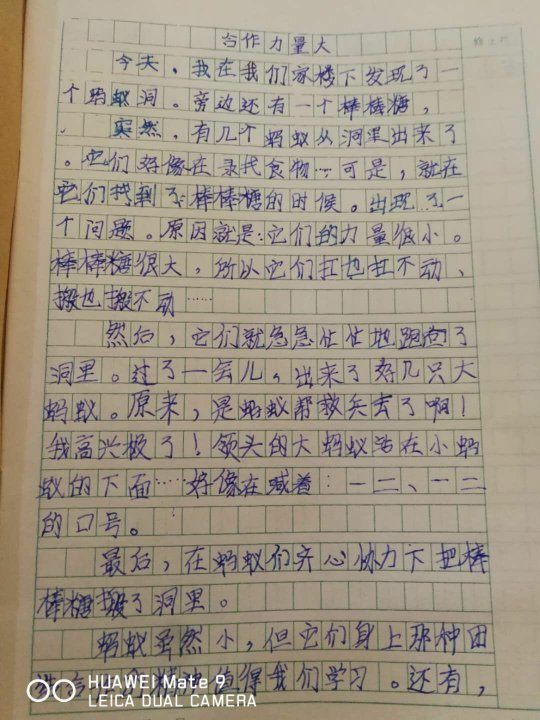 合作力量大
今天。我在我们家楼下发现了一
个蚂蚁洞。旁边还有一个棒棒糖,
突然,有几个蚂蚁从洞里出来了
。它们好像在寻找食物…可是,就在
它们找到了棒棒糖的时候。出现了一
个问题。原因就是:它们的力量很小。
棒棒糖很大,所以它们扛也扛不动、
搬也搬不动……
然后,它们就急急忙忙地跑向了
洞里。过了一会儿,出来了好几只大
蚂蚁。原来,是蚂蚁帮救兵去了啊!
我高兴极了!领头的大蚂蚁站在小蚂
蚁的下面……好像在喊着:一二、一二
的口号。
最后,在蚂蚁们齐心协力下把棒
棒糖搬了洞里。
蚂蚁虽然小,但它们身上那种团
值得我们学习。还有,
HUAWEI Mate 9
LEICA DUAL CAMERA